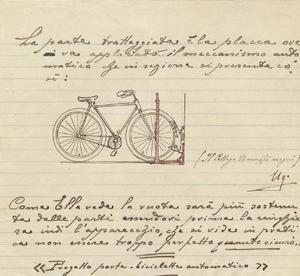 La parte tratteggiata è la placca ove
va applicato il meccanismo auto
matico che in sezione si presenta co
sì:
Come Ella vede la ruota sarà più sostenu
ta dalle parti essendovi prima la
e poi l'apparecchio, che si vide in prati
ca non essere troppo perfetto quanto sicuro.
« Progetto porta-biciclette automatico »